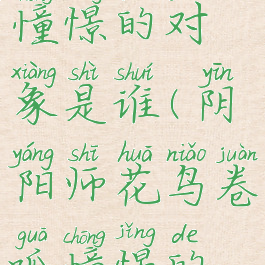 憧憬的对
xiàng shì shuí yīn
象是谁(阴
yáng shī huā niǎo juàn
阳师花鸟卷
guā chōng jǐng de
呱憧憬的